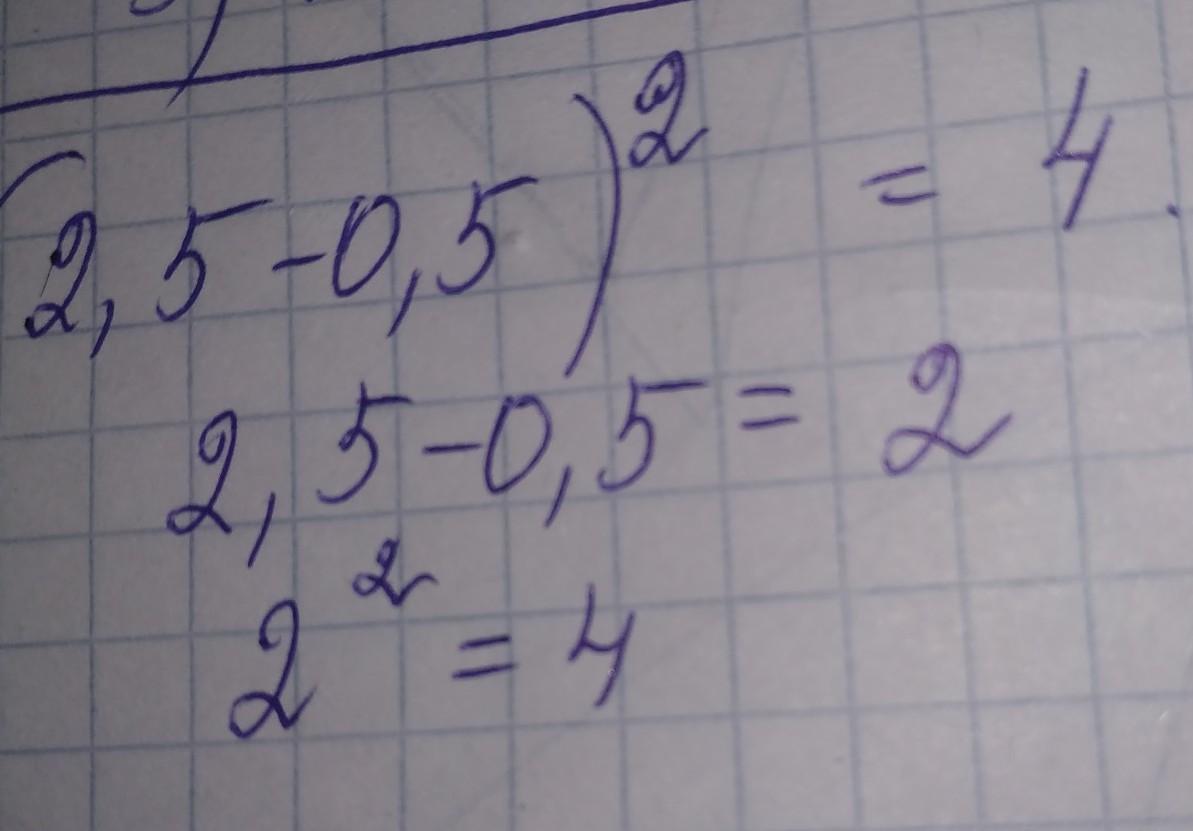 (2,5-0,5)² = 4.
2,5-0,5=2
2²=4